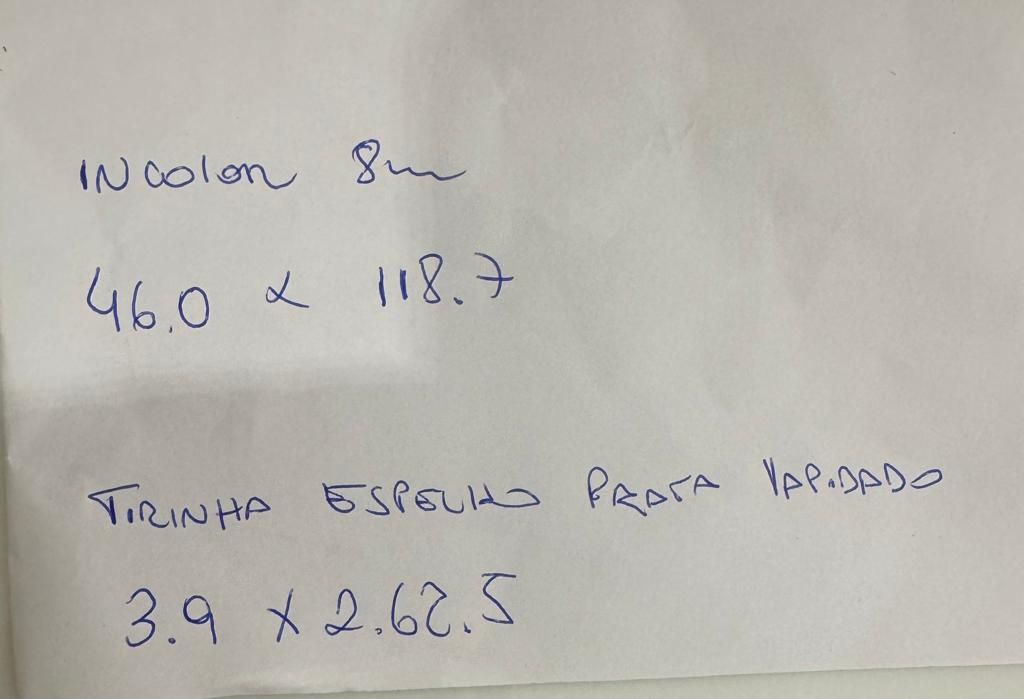 INcolor 8m
46.0 x 118.7
TIRINHA ESPELHO PRATA LAPIDADO
3.9 x 2.62.5